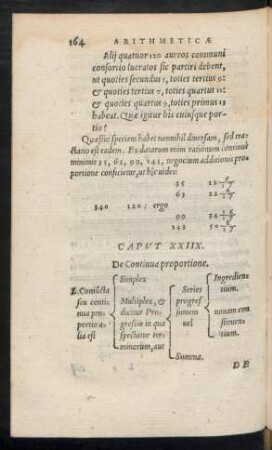 164 ARITHMETICÆ
Alij quatuor 120 aureos communi
consortio lucratos sic partiri debent,
ut quoties secundus 5, toties tertius 9:
& quoties tertius 7, toties quartus 11:
& quoties quartus 9, toties primus 13
habeat. Quæ igitur his cuiusque por-
tio?
Quæstio speciem habet nonnihil diuersam, sed tra-
ctatio est eadem. Ex datarum enim rationum continuè
minimis 35, 63, 99, 143, negocium additionis pro-
portione conficietur, ut hîc uides:
35
63
340 120: ergo
99
143
CAPVT XXIIX.
De Continua proportione.
Simplex
E. Coniucta
seu conti-
nua pro-
portio a-
lia est
Multiplex, &
dicitur Pro-
gressio in qua
spectatur ter-
minorum, aut
Series
progres-
sionem
uel
Ingredien-
tium.
nouam con-
stituen-
tium.
Summa.
DE